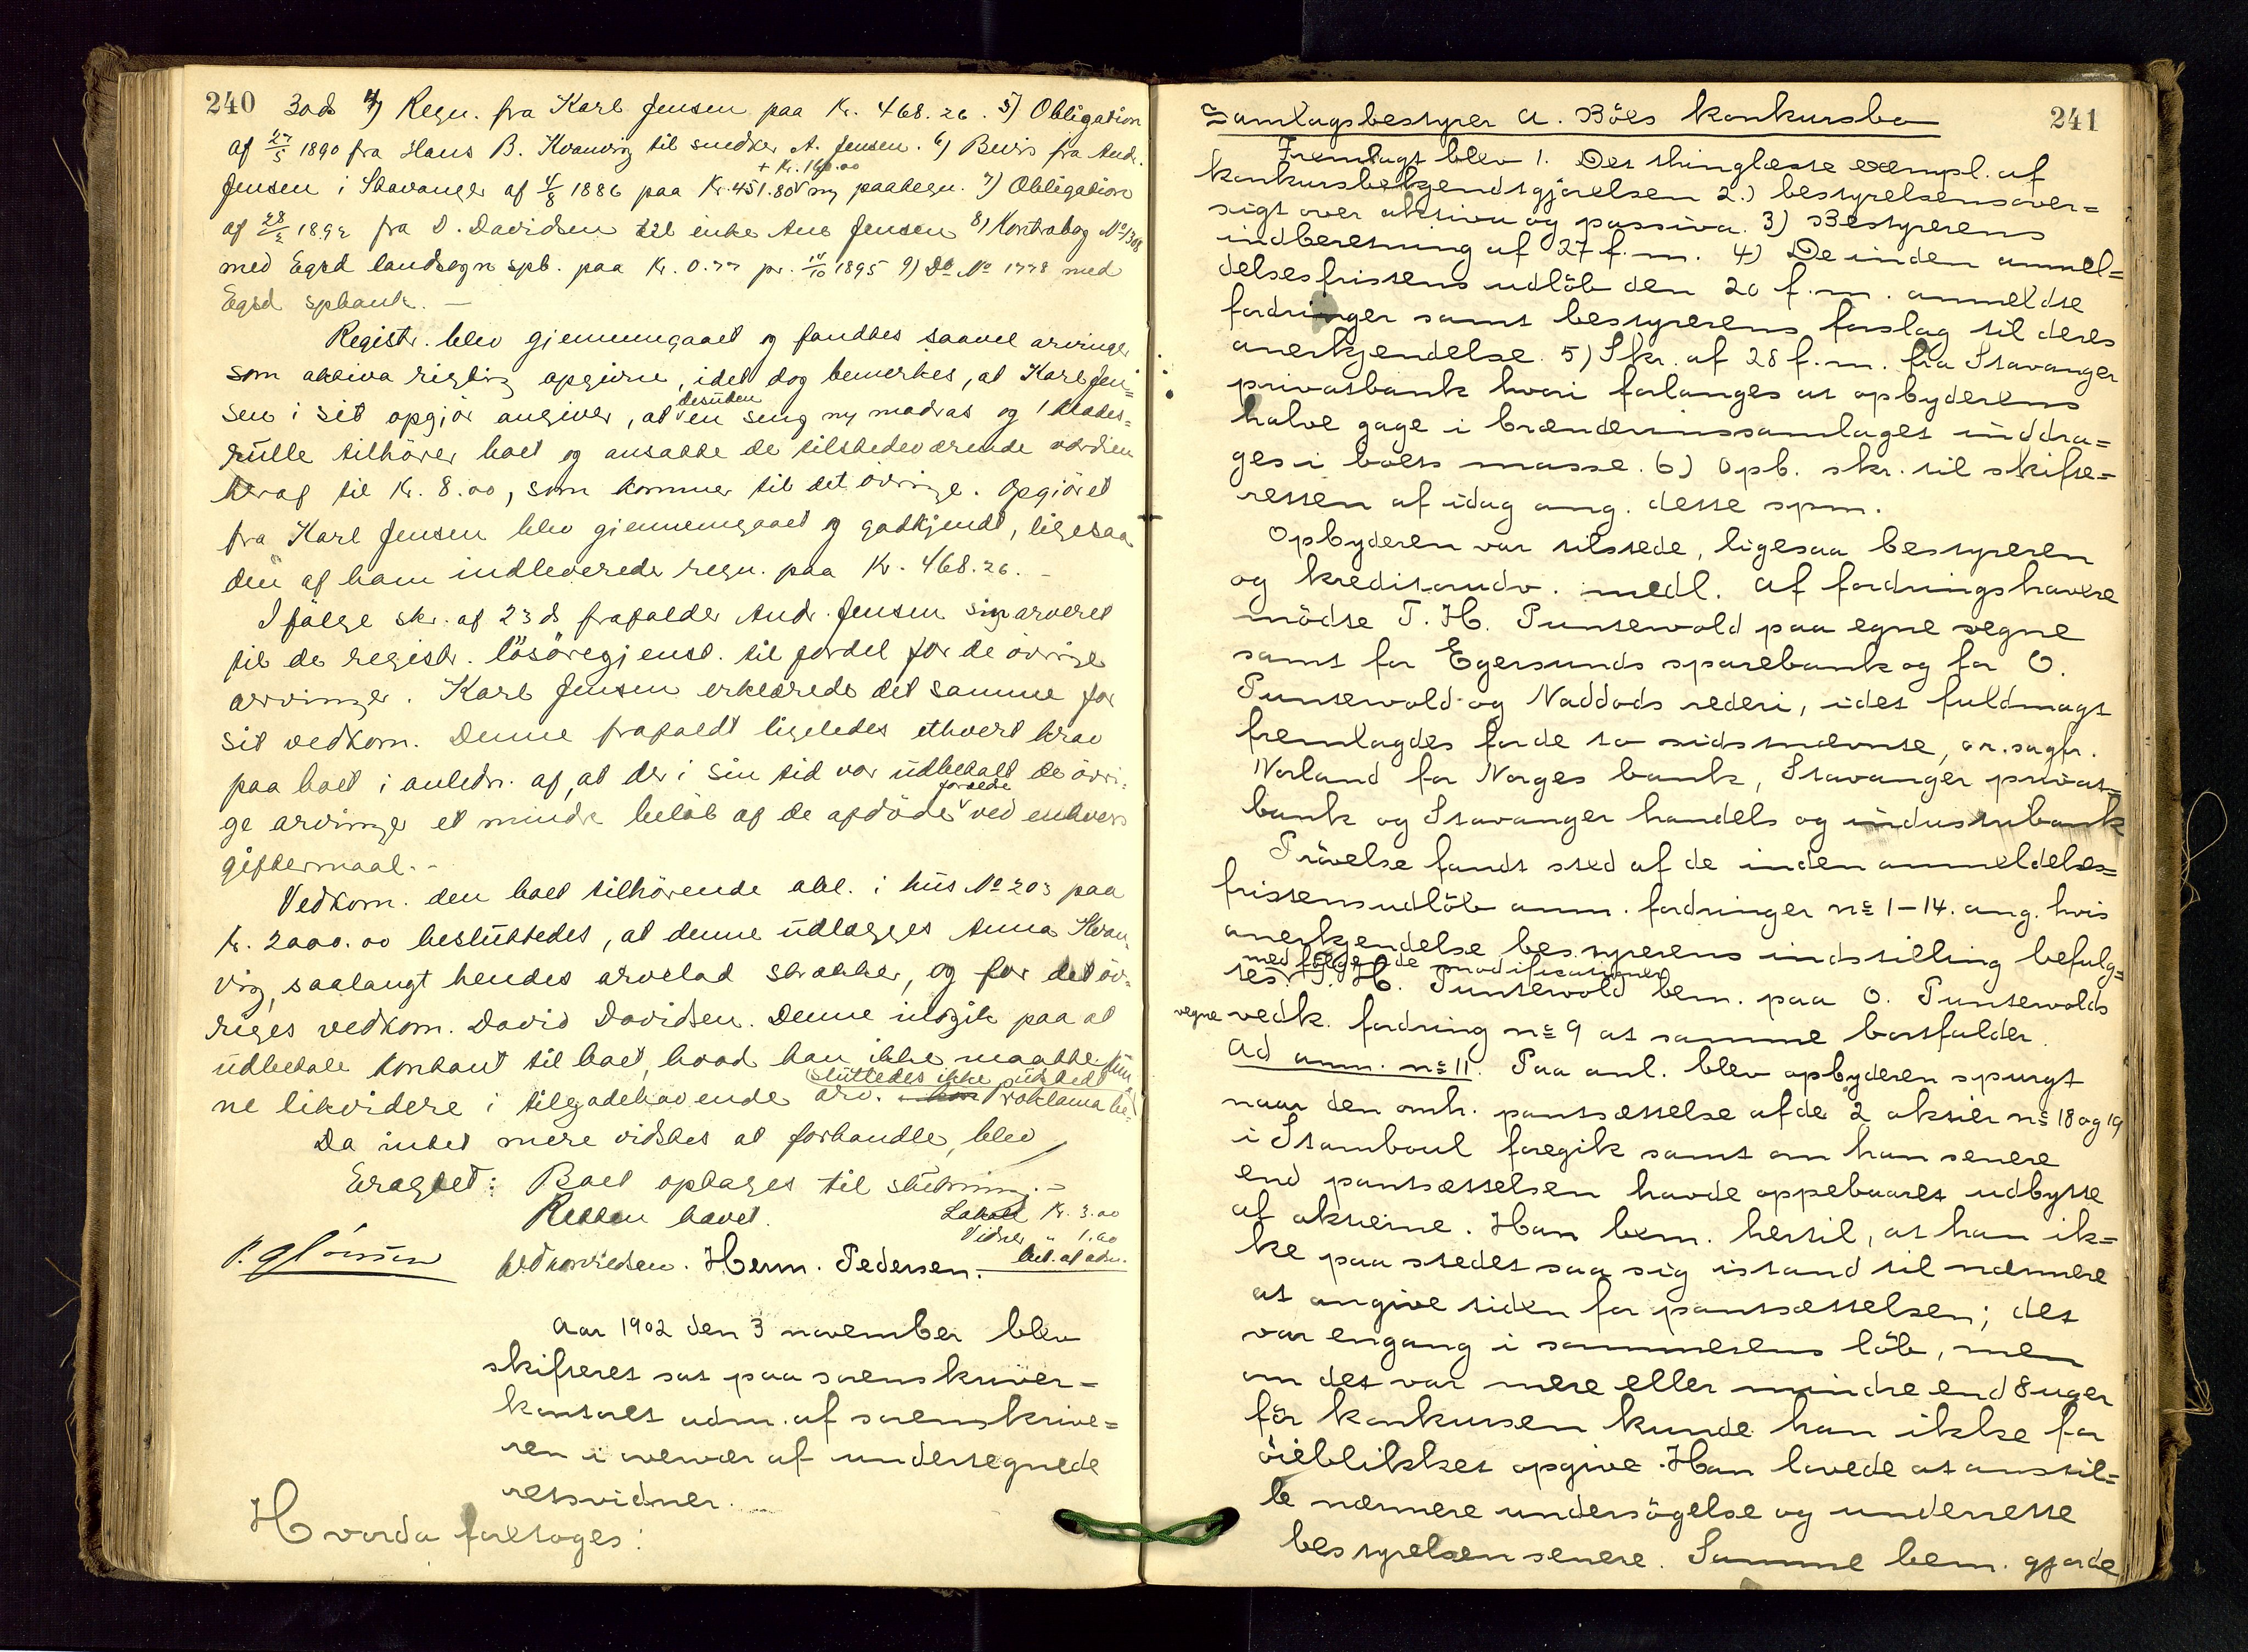 240 30ds 4) Regn. fra Karl Jensen paa Kr. 468.26. 5) Obligation
af 27/5 1890 fra Hans B. Kvanvig til snedker A. Jensen. 6) Bevis fra Andr.
+ Kr. 160.00
Jensen i Stavanger af 4/8 1886 paa Kr. 451.80 paategn. 7) Obligation
af 28/2 1892 fra D. Davidsen til enke Ane Jensen 8) Kontrabog No 1308
med Egsd landsogn spb. paa Kr. 0.77 pr. 14/10 1895 9) Do No 1778 med
Egsd spbank. —
Registr. blev gjennemgaaet og fandtes saavel arvinger
som aktiva rigtig opgivne, idet dog bemerkes, at Karl Jen=
desuden
sen i sit opgjör angiver, at en seng ny madras og 1 klædes=
rulle tilhører boet og ansatte de tilstedeværende værdien
heraf til Kr. 8.00, som kommer til det övrige. Opgjöret
fra Karl Jensen blev gjennemgaaet og godkjendt, ligesaa
den af ham indleverede regn. paa Kr. 468.26. —
Ifølge skr. af 23 ds frafalder Andr. Jensen sin arveret
til de registr. lösöregjenst. til fordel for de övrige
arvinger. Karl Jensen erklærede det samme for
sit vedkom. Denne frafaldt ligeledes ethvert krav
paa boet i anledn. af, at der i sin tid var udbetalt de övri-
forældre
ge arvinger et mindre belöb af de afdöde ved enhvers
giftermaal. -
Vedkom. den boet tilhörende obl. i hus No 203 paa
Kr. 2000.00 besluttedes, at denne udlægges Anna Kvan-
vig, saalangt hendes arvelod strækker, og for det öv-
riges vedkom. David Davidsen. Denne indgik paa at
udbetale kontant til boet, hvad han ikke maatte kun
sluttedes ikke udstedt
ne likvidere i tilgodehavende arv. Proklama be-
Da intet mere vidstes at forhandle, blev
Eragtet: Boet optages til slutning. -
Retten hævet.
Lokale Kr. 3.00
Vidner " 1.60
bet. af adm.
Herm. Pedersen.
Aar 1902 den 3 november blev
skifteret sat paa sorenskriver=
kontoret adm. af sorenskrive=
ren i overvær af undertegnede
retsvidner.
Hvorda foretoges:
241
Samlagsbestyrer A. Böes konkursbo
Fremlagt blev 1. Det thinglæste exempl. af
konkursbekjendtgjörelsen 2.) bestyrelsens over=
sigt over aktiva og passiva. 3) Bestyrerens
indberetning af 27 f.m. 4) De inden anmel=
delsesfristens udlöb den 20 f.m. anmeldte
fordringer samt bestyrerens forslag til deres
anerkjendelse. 5) Skr. af 28 f.m. fra Stavanger
privatbank hvori forlanges at opbyderens
halve gage i brændevinssamlaget inddra=
ges i boets masse. 6) Opb. skr. til skifte=
retten af idag ang. dette spm.
Opbyderen var tilstede, ligesaa bestyreren
og kreditorudv. medl. Af fordringshavere
mödte T. H. Puntervold paa egne vegne
samt for Egersunds sparebank og for O.
Puntervold og Naddods rederi, idet fuldmagt
fremlagdes for de to sidstnævnte, or. sagfr.
Norland for Norges bank, Stavanger privat=
bank og Stavanger handels og industribank
Prövelse fandt sted af de inden anmeldelses=
fristens udlöb anm. fordringer no 1-14. ang. hvis
anerkjendelse bestyrerens indstilling befulg=
med fölgende modifikationer
tes. T. H. Puntervold bem. paa O. Puntervolds
vegne vedk. fordring no 9 at samme bortfalder.
Ad anm. no 11. Paa anl. blev opbyderen spurgt
naar den omh. pantsættelse af de 2 aktier no 18 og 19
i Stamboul foregik samt om han senere
end pantsættelsen havde oppebaaret udbytte
af aktierne. Han bem. hertil, at han ik=
ke paa stedet saa sig istand til nærmere
at angive tiden for pantsættelsen; det
var engang i sommerens löb, men
om det var mere eller mindre end 8 uger
för konkursen kunde han ikke for
öieblikket opgive. Han lovede at anstil=
le nærmere undersögelse og underrette
bestyrelsen senere. Samme bem. gjorde